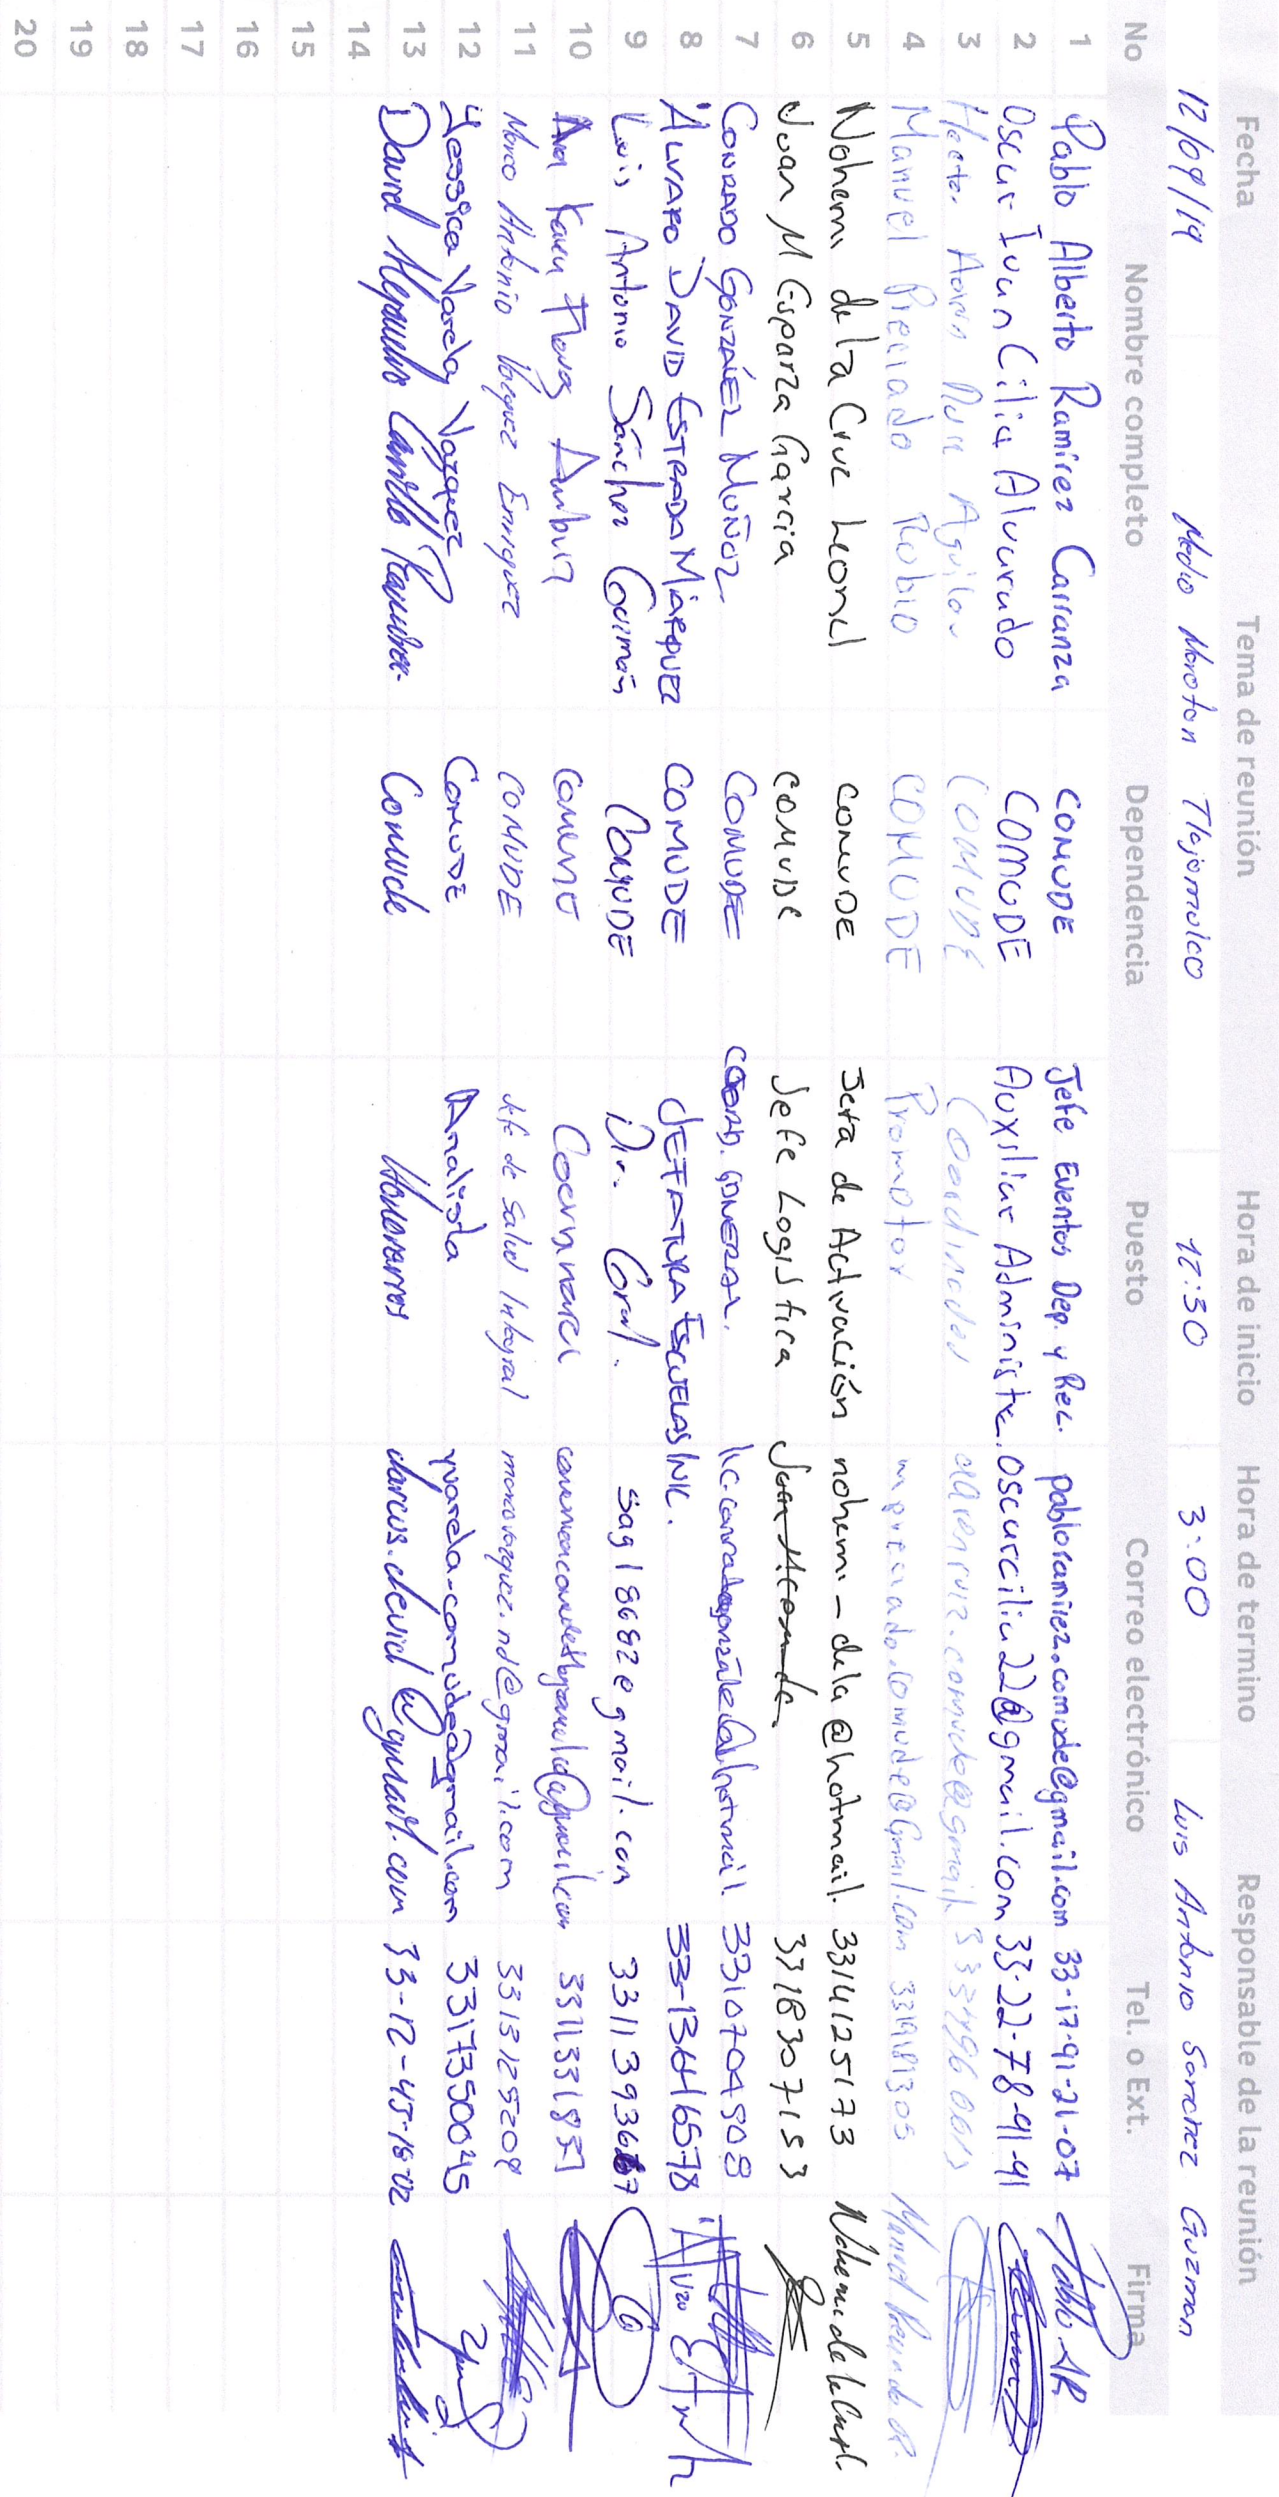 Fecha Tema de reunión Hora de inicio Hora de termino Responsable de la reunión
12/09/19 Medio Maraton Tlajomulco 12:30 3:00 Luis Antonio Sanchez Guzman
No Nombre completo Dependencia Puesto Correo electrónico Tel. o Ext. Firma
1 Pablo Alberto Ramirez Carranza COMUDE Jefe Eventos Dep. y Rec. pabloramirez.comude@gmail.com 33-17-91-21-07 Pablo AR
2 Oscar Ivan Cilia Alvarado COMUDE Auxiliar Administr. oscarcilia22@gmail.com 33-22-78-91-91
3 Hector Aguilar COMUDE Coordinador
4 Manuel Preciado Rubio COMUDE Promotor mpreciado.comude@Gmail.com Manuel Preciado R.
5 Nohemi de la Cruz Leonel COMUDE Jefa de Activación nohemi-dela@hotmail. 3314125173 Nohemi de la Cruz L.
6 Juan M Esparza Garcia COMUDE Jefe Logistica 3318307153
7 CONRADO GONZÁLEZ MUÑOZ. COMUDE COORD. GENERAL. 3310704808
8 ÁLVARO DAVID ESTRADA MÁRQUEZ COMUDE JEFATURA ESCUELAS INIC. 33-13646578
9 Luis Antonio Sánchez Guzmán COMUDE Dir. Gral. sag18682@gmail.com
10 Ana Karen Flores COMUDE 3313318351
11 Marco Antonio Vazquez Enriquez COMUDE Jefe de Salud Integral marcovazquez.nd@gmail.com 3313125209
12 Yessica Yareda Vazquez COMUDE Analista yareda.comude@gmail.com 3317350045
13 David Alejandro Carrillo Ramirez Comude Honorarios 33-12-45-16-02
14
15
16
17
18
19
20